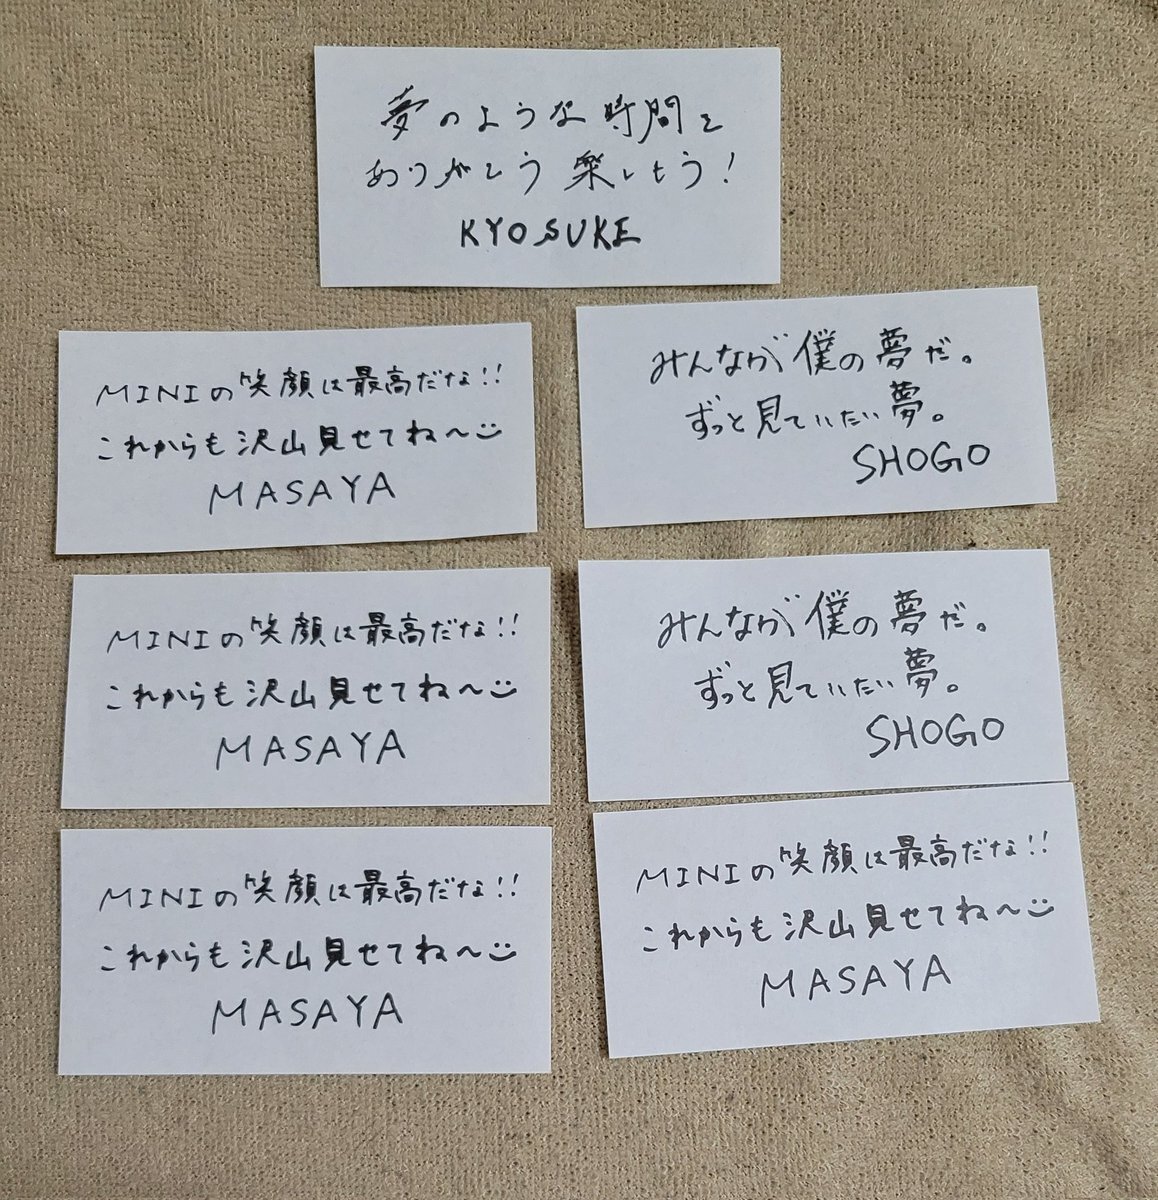 夢のような時間を
ありがとう 楽しもう!
KYOSUKE
MINIの笑顔は最高だな!!
これからも沢山見せてね〜
MASAYA
みんなが僕の夢だ。
ずっと見ていたい夢。
SHOGO
MINIの笑顔は最高だな!!
これからも沢山見せてね〜
MASAYA
みんなが僕の夢だ。
ずっと見ていたい夢。
SHOGO
MINIの笑顔は最高だな!!
これからも沢山見せてね〜
MASAYA
MINIの笑顔は最高だな!!
これからも沢山見せてね〜
MASAYA